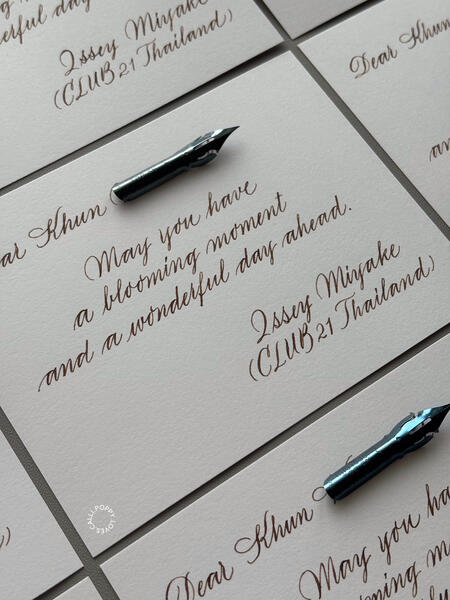 erful day
Issey Miyake
(CLUB 21 Thailand)
Dear Khun
an
ar Khun
May you have
a blooming moment
and a wonderful day ahead.
Issey Miyake
(CLUB 21 Thailand)
CALLI.POPPY.LOVES
Dear Khun
May you ha
a blooming m
and a wonderful